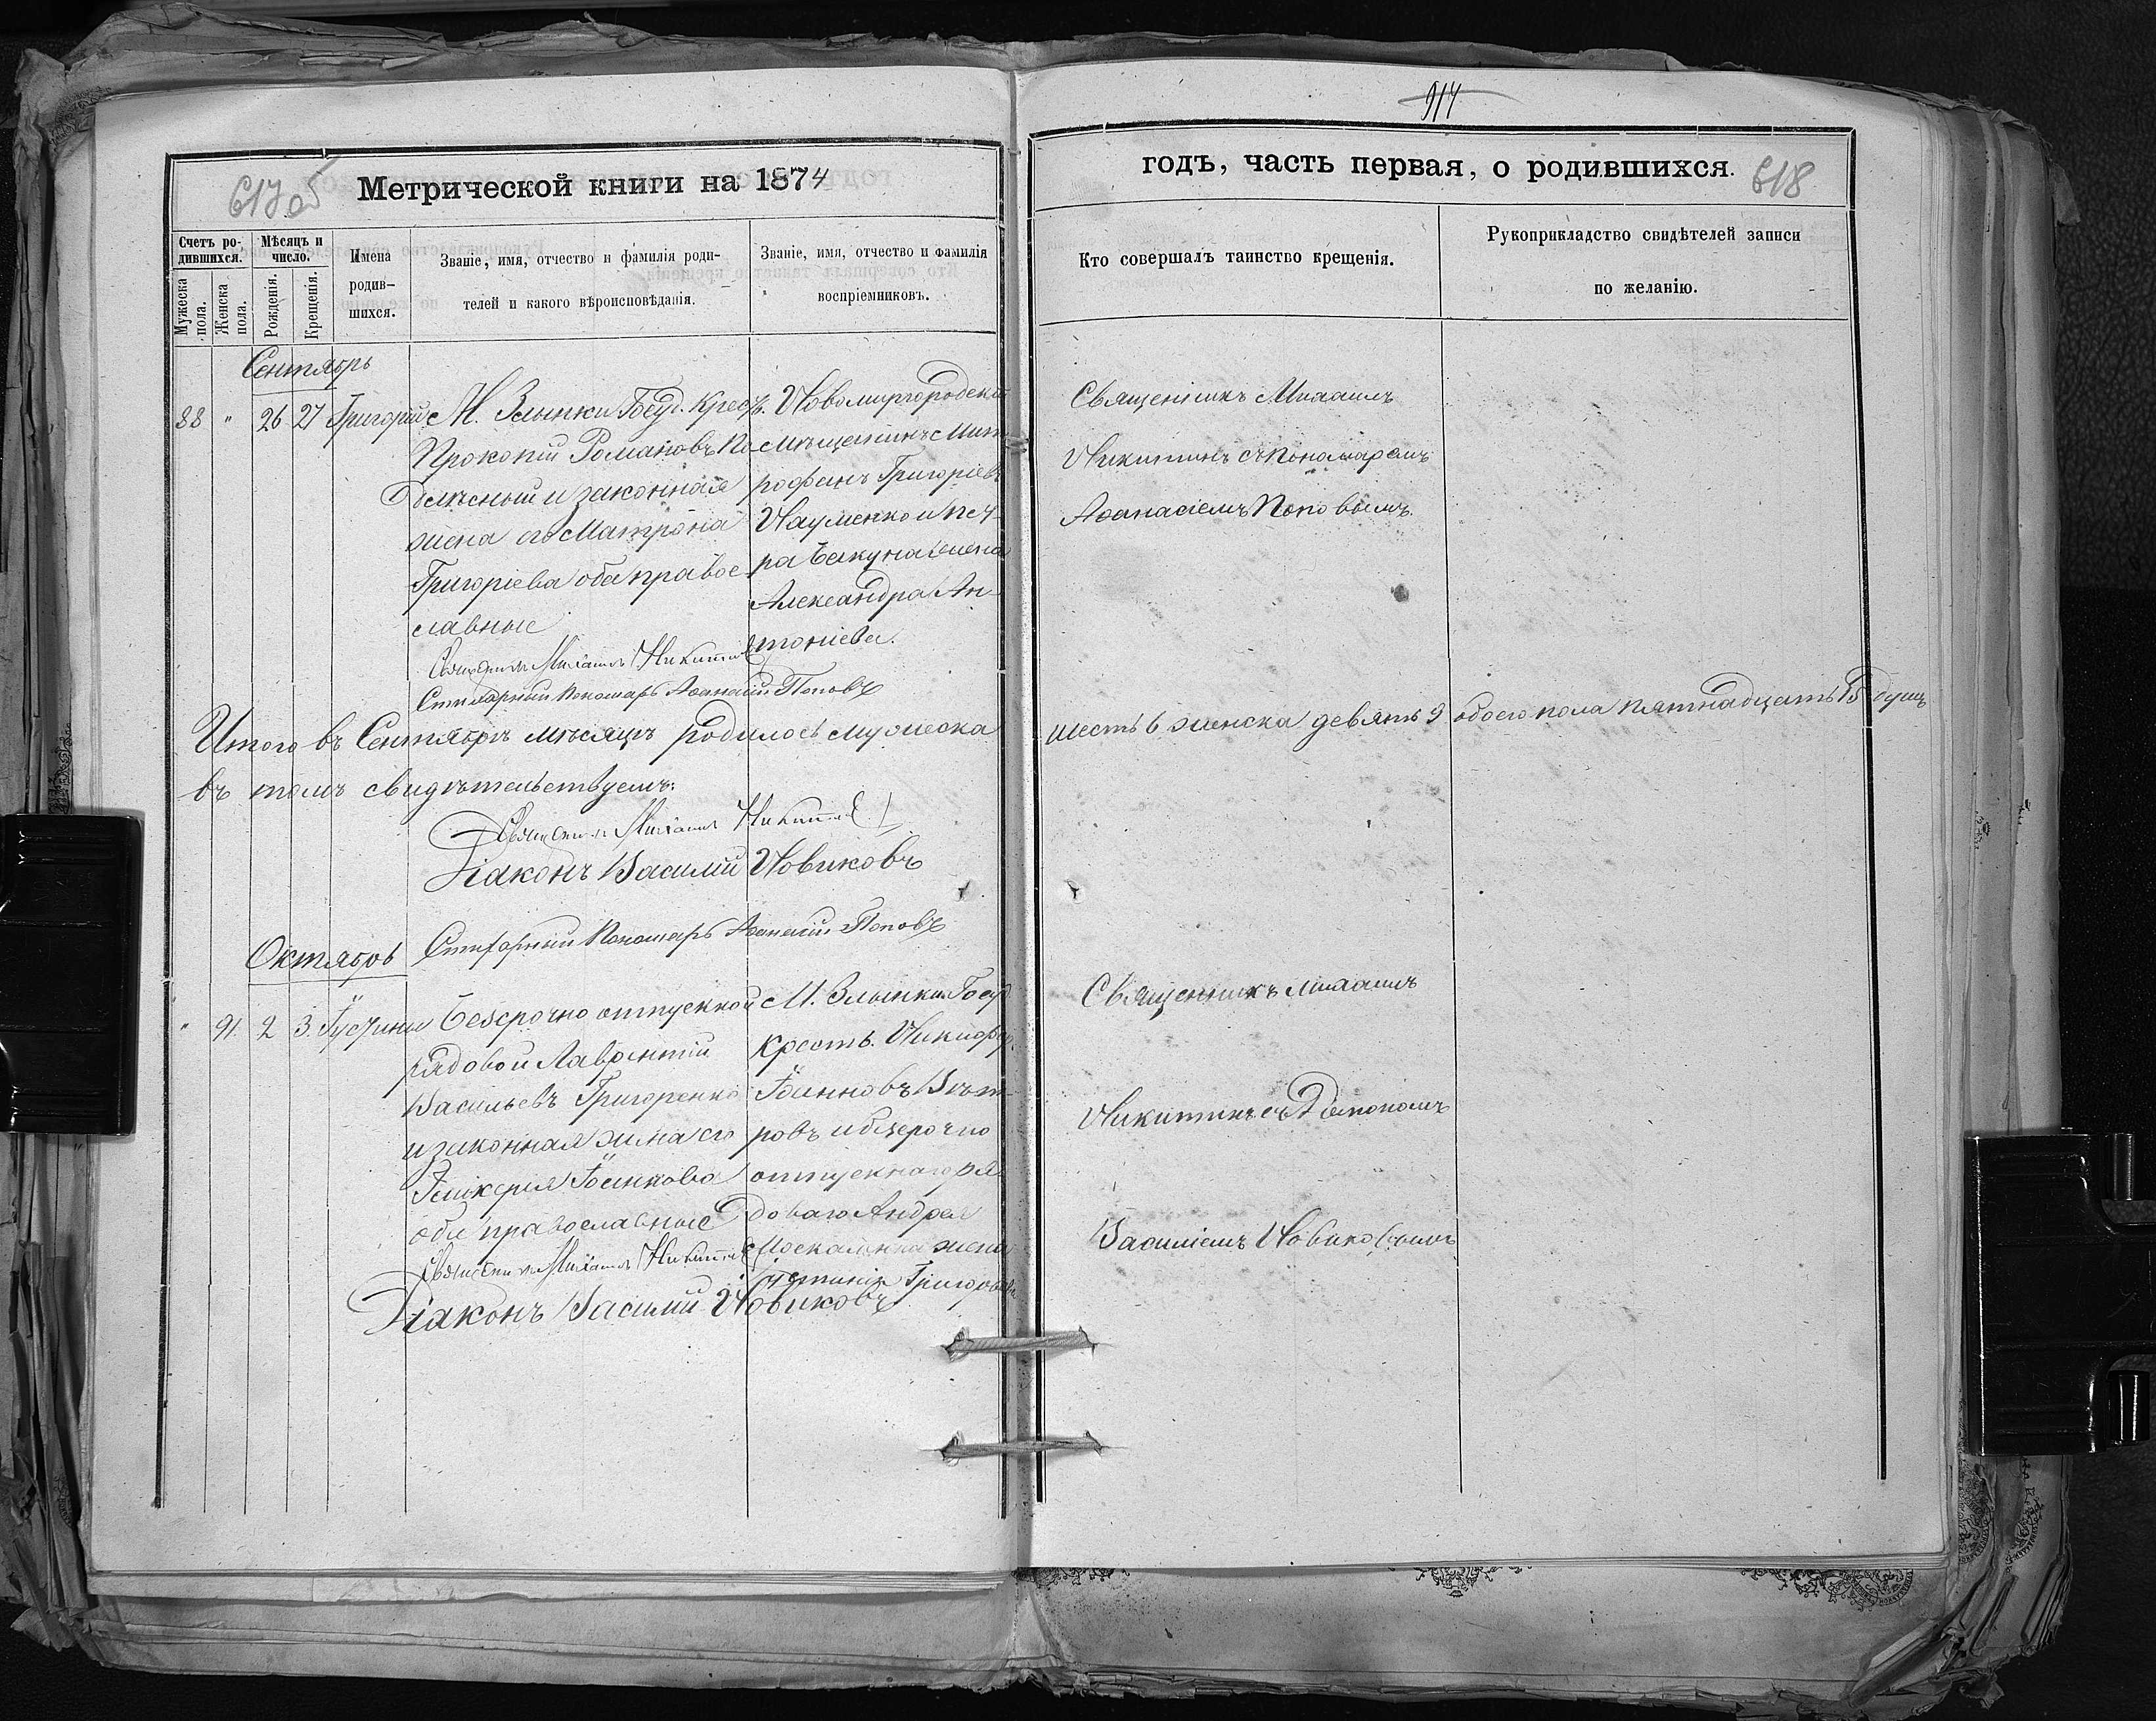 914
617 об
Метрической книги на 1874
годъ, часть первая, о родившихся.
618
Счетъ ро-
дившихся.
Мужеска
пола.
Женска
пола.
Мѣсяцъ и
число.
Рожденія.
Крещенія.
Имена
родив-
шихся.
Званіе, имя, отчество и фамилія роди-
телей и какого вѣроисповѣданія.
Званіе, имя, отчество и фамилія
воспріемниковъ.
Кто совершалъ таинство крещенія.
Рукоприкладство свидѣтелей записи
по желанію.
Сентябрь
88 " 26 27 Григорій
М. Злынки Госуд. Крест.
Прокопій Романовъ По-
дльсный и законная
жена его Матрона
Григоріева оба правос-
лавные
Священникъ Михаилъ Никитинъ
Стихарный Пономарь Аѳанасій Поповъ
Новомиргородскій
Мѣщанинъ Мит-
рофанъ Григоріевъ
Науменко и Пет-
ра жена
Александра Ан-
тоніева.
Священникъ Михаилъ
Никитинъ съ Пономаремъ
Аѳанасіемъ Поповымъ.
Итого въ Сентябрѣ мѣсяцѣ родилось мужеска
шесть 6 женска девять 9 обоего пола пятнадцать 15 душъ
въ томъ свидѣтельствуемъ:
Священникъ Михаилъ Никитинъ
Діаконъ Василій Новиковъ
Стихарный Пономарь Аѳанасій Поповъ
Октябрь
" 91. 2 3. Іустина
Безсрочно отпускной
рядовой Лаврентій
Васильевъ Григоренко
и законная жена его
Гликерія
оба православные
Священникъ Михаилъ Никитинъ
Діаконъ Василій Новиковъ
М. Злынки Госуд.
Крест. Никифоръ
Іоанновъ Вѣт-
ровъ и безсрочно
отпускнаго ря-
доваго Андрея
Москаленка жена
Григорьева
Священникъ Михаилъ
Никитинъ съ Діакономъ
Василіемъ Новиковымъ